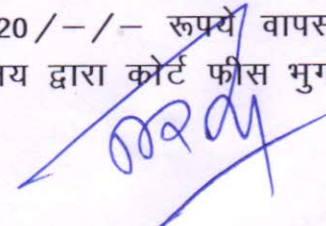 20/-/- रूपये वापस
य द्वारा कोर्ट फीस भुग